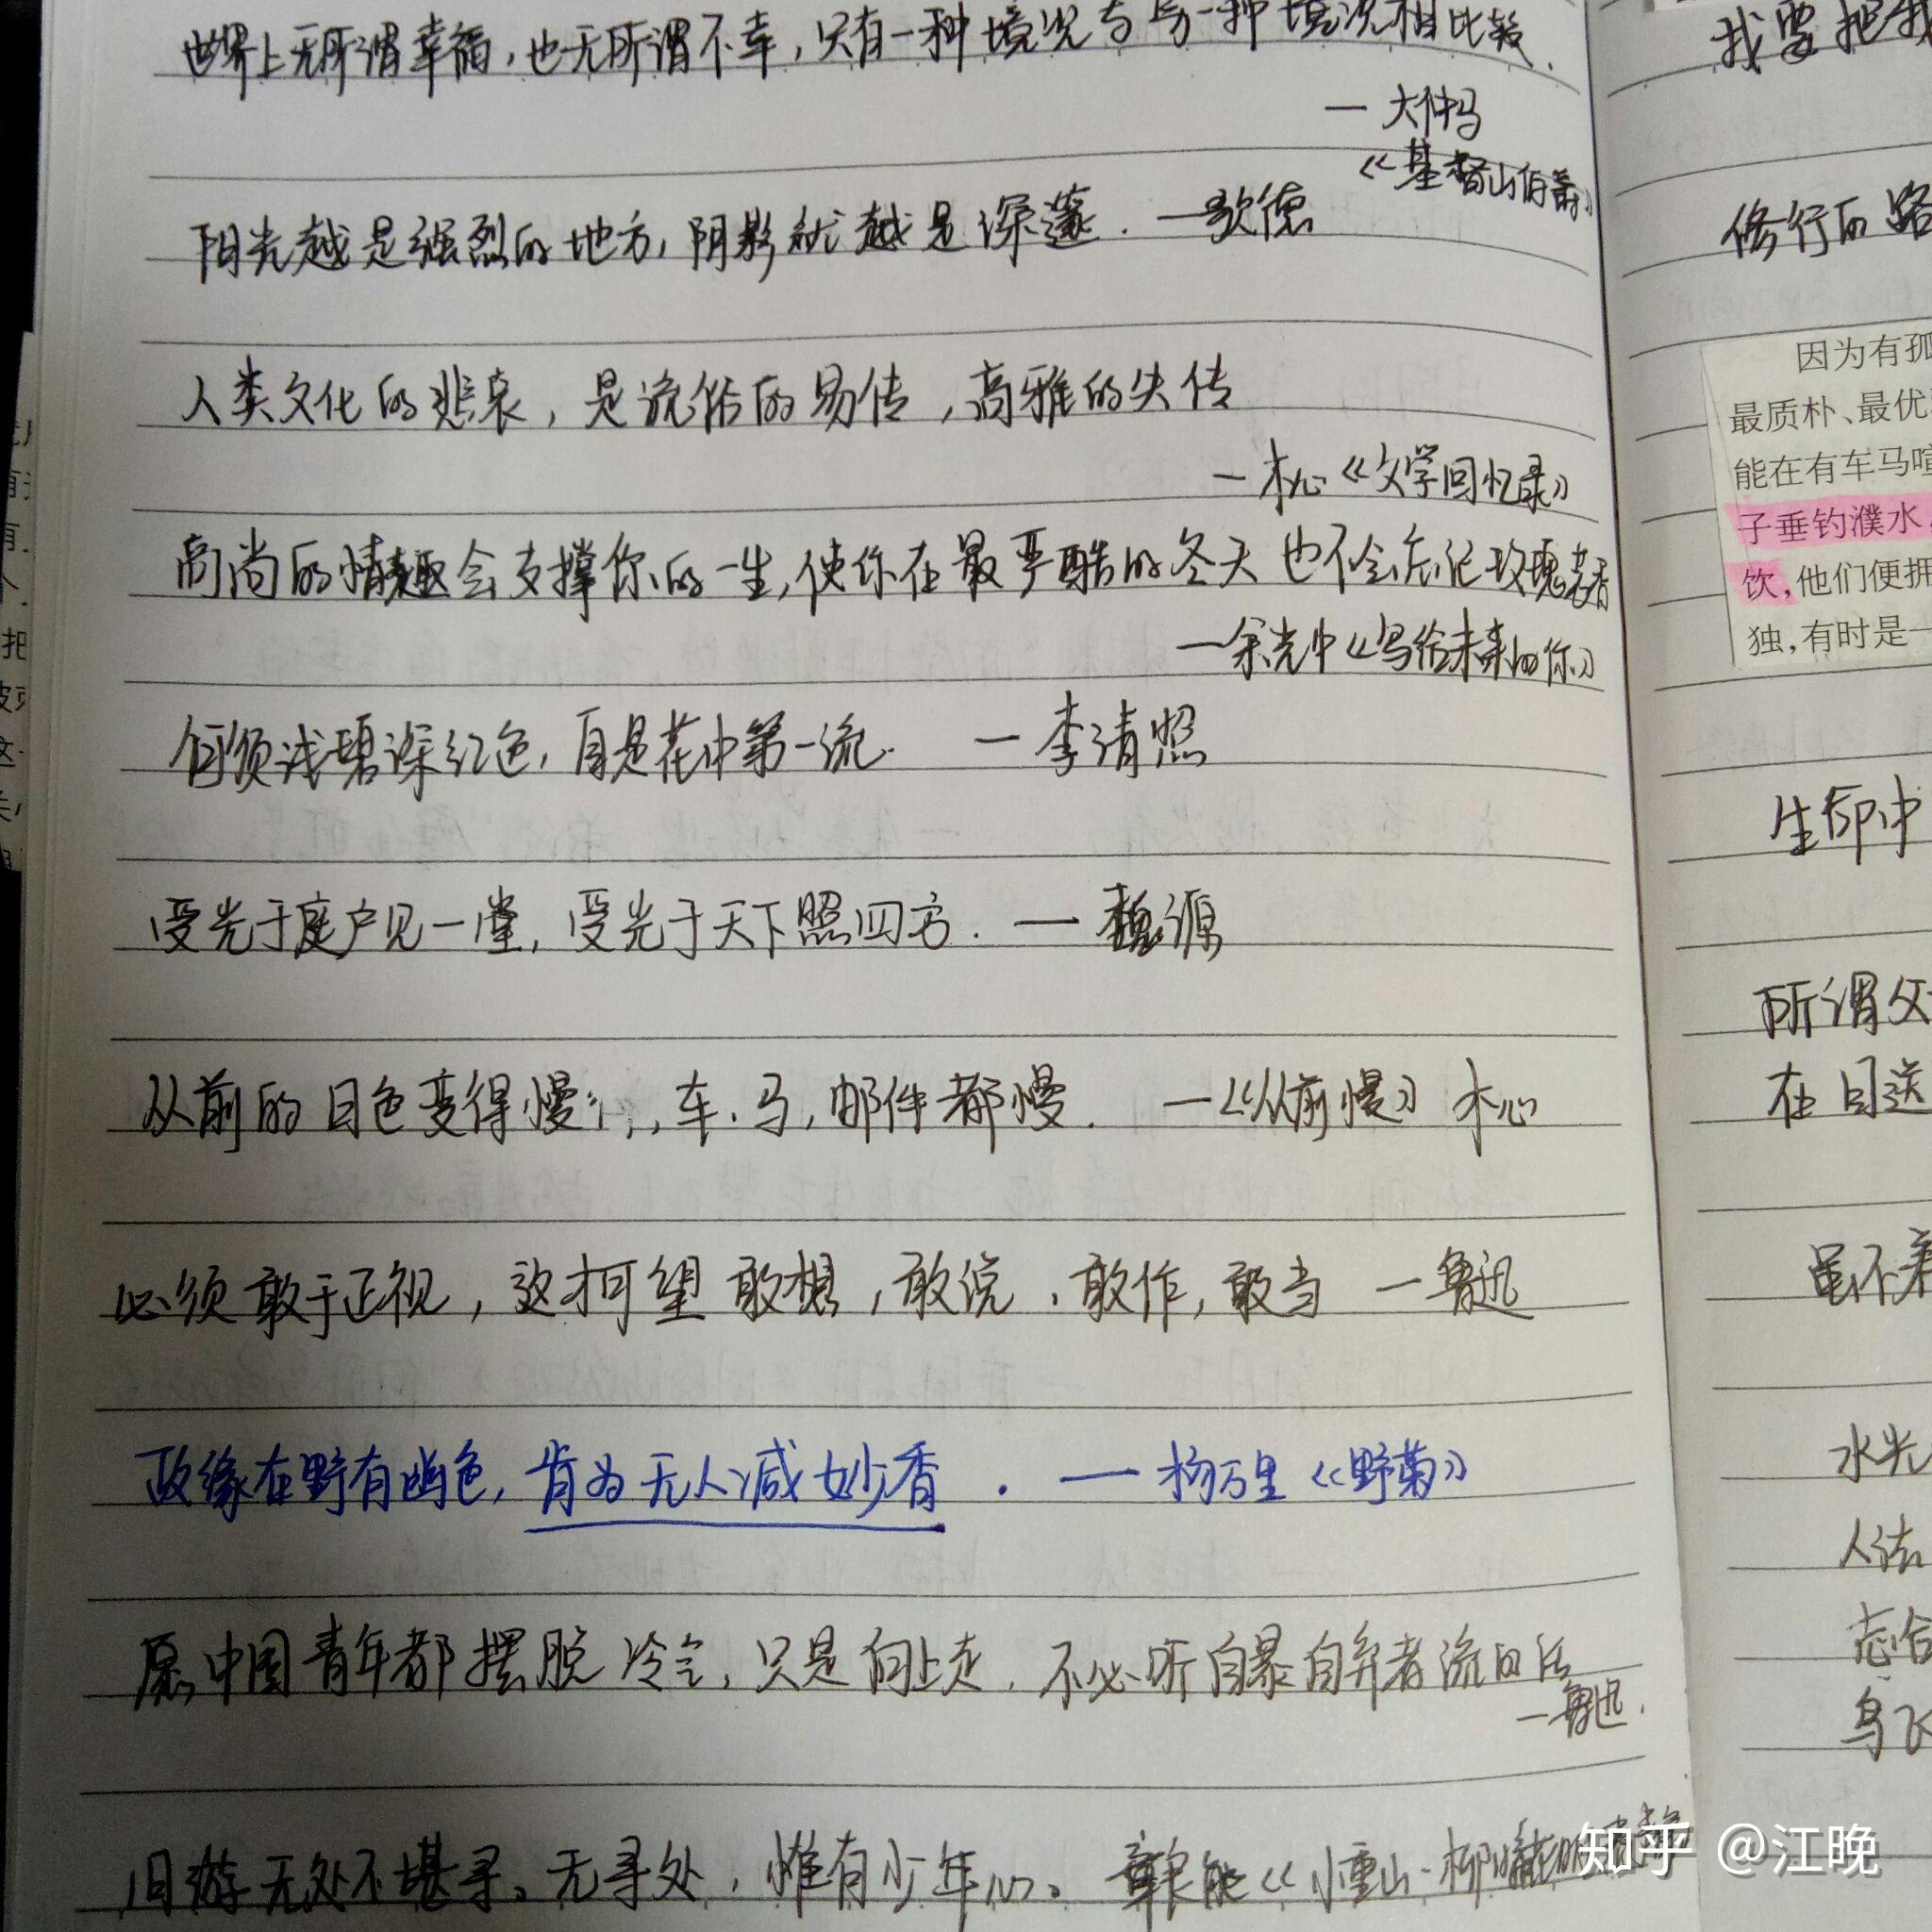 世界上无所谓幸福,也无所谓不幸,只有一种境况与另一种境况相比较.
— 大仲马
《基督山伯爵》
阳光越是强烈的地方,阴影就越是深邃. —歌德
人类文化的悲哀,是流俗的易传,高雅的失传
—木心《文学回忆录》
高尚的情趣会支撑你的一生,使你在最严酷的冬天也不会忘记玫瑰芳香
—余光中《写给未来的你》
何须浅碧深红色,自是花中第一流. —李清照
受光于庭户见一堂,受光于天下照四方. — 魏源
从前的日色变得慢,车,马,邮件都慢. —《从前慢》 木心
必须敢于正视,这才可望敢想,敢说,敢作,敢当 —鲁迅
政缘在野有幽色,肯为无人减妙香. — 杨万里《野菊》
愿中国青年都摆脱冷气,只是向上走,不必听自暴自弃者流的话
—鲁迅.
旧游无处不堪寻。无寻处,惟有少年心。 章良能《小重山·柳暗花明
我要把我
修行的路
因为有孤
最质朴、最优
能在有车马喧
子垂钓濮水,
饮,他们便拥
独,有时是一
生命中
所谓父
在目送
虽不
水光
人法
志合
鸟飞
知乎 @江晚